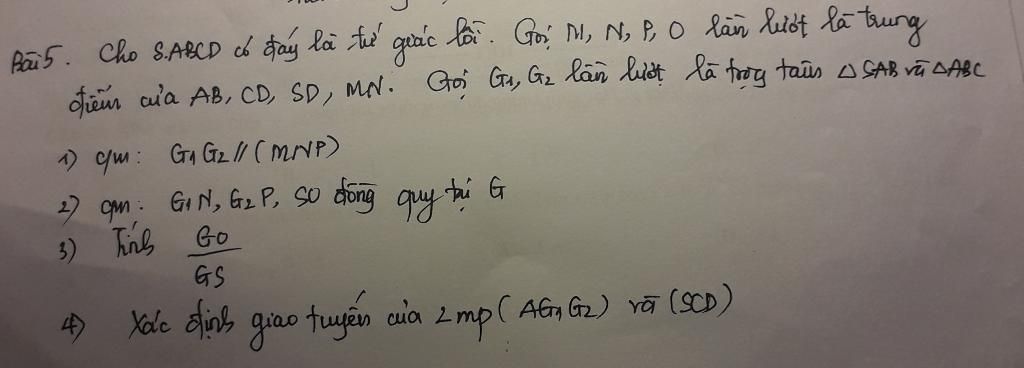 Bài 5. Cho S.ABCD có đáy là tứ giác lồi. Gọi M, N, P, O lần lượt là trung
điểm của AB, CD, SD, MN. Gọi G1, G2 lần lượt là trọng tâm △ SAB và △ABC
1) c/m: G1G2 // (MNP)
2) cm: G1N, G2P, SO đồng quy tại G
3) Tính GO/GS
4) Xác định giao tuyến của 2 mp (AG1G2) và (SCD)